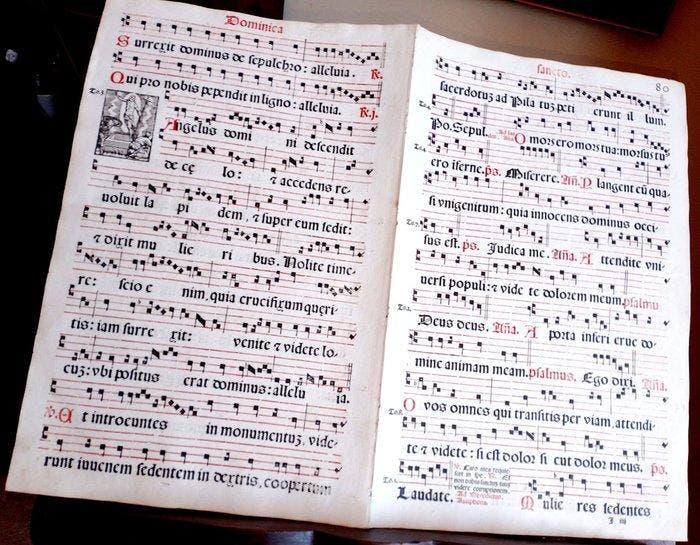 Dominica
Surrexit dominus de sepulchro: alleluia. ℟.
Qui pro nobis pependit in ligno: alleluia. ℟.j.
Angelus domi ni descendit
de cę lo: ⁊ accedens re-
uoluit la pi dem, ⁊ super eum sedit:
⁊ dixit mu lie ri bus. Nolite time-
re: scio e nim, quia crucifixum queri
tis: iam surre xit: venite ⁊ videte lo-
cuʒ: vbi positus erat dominus: allelu ia.
℣. Et introeuntes in monumentuʒ, vide-
runt iuuenem sedentem in dextris, coopertum
sancto. 80
sacerdotuʒ ad Pila tuʒ peti erunt il lum.
Po. Sepul. O mors ero mors tua: morsus tu
ero iferne. p̄s. Miserere. Añ. P langent eū qua-
si vnigenitum: quia innocens dominus occi-
sus est. p̄s. Judica me. Aña. A ttendite vni-
uersi populi: ⁊ vide te dolorem meum. psalmu
Deus deus. Aña. A porta inferi erue do-
mine animam meam. psalmus. Ego dixi. Aña.
O vos omnes qui transitis per viam, attendi-
te ⁊ videte: si est dolor si cut dolor meus. p̄s.
℣. Caro mea requie-
scet in spe. ℟. Et
non dabis sanctus tuus
videre corruptionem.
Laudate. Ad Benedictus. Mulie res sedentes